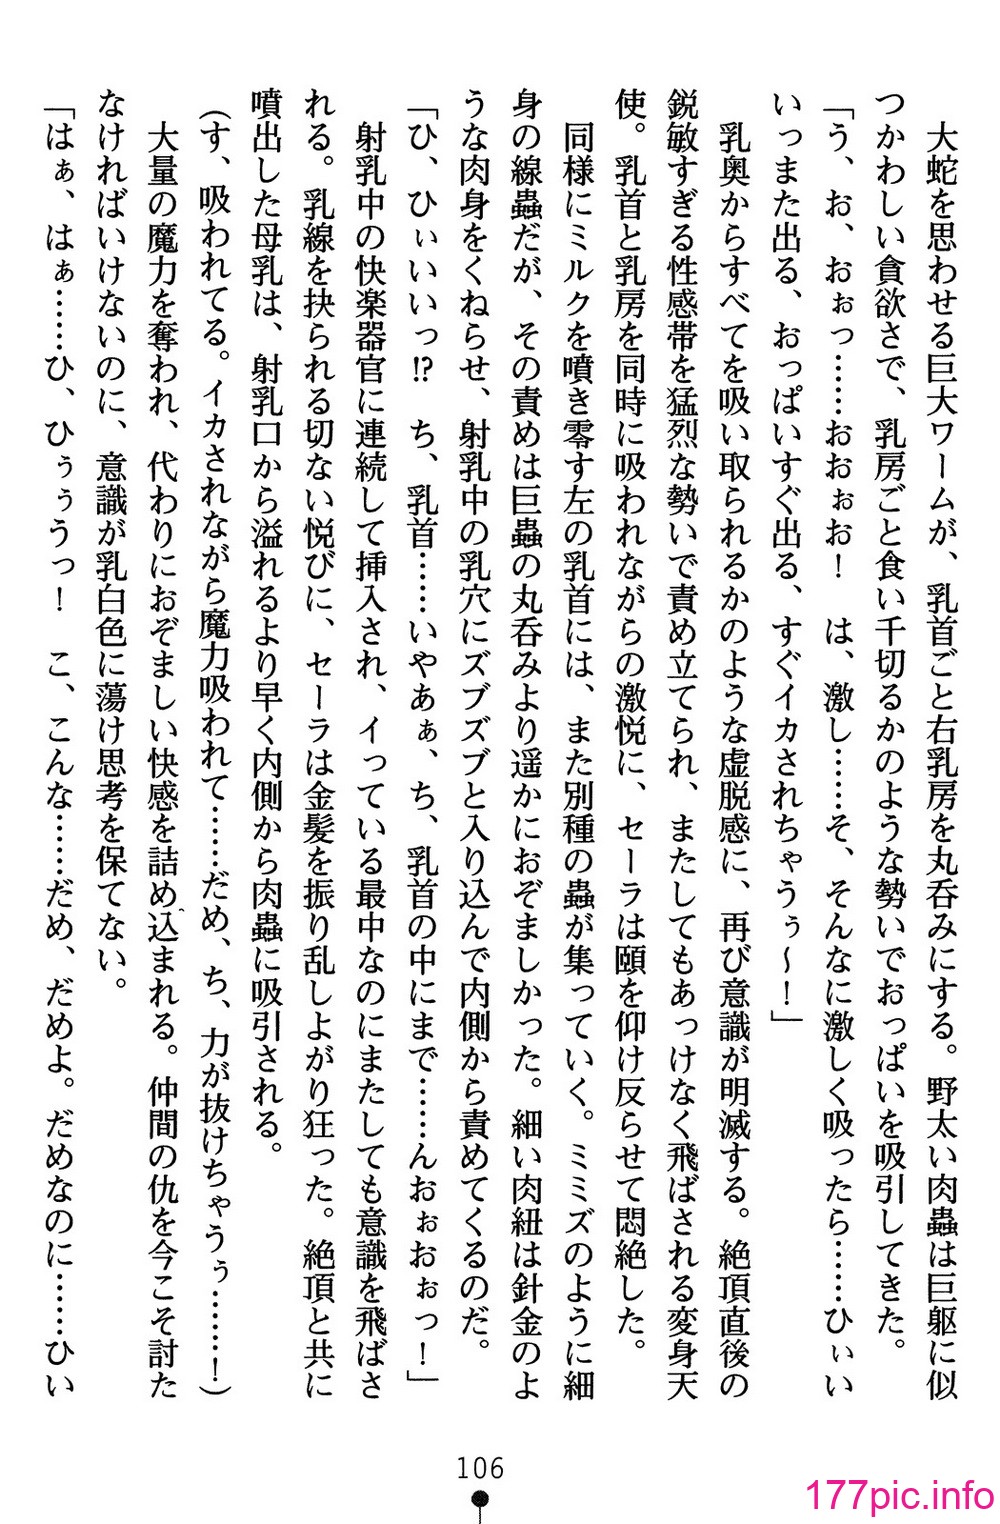 大蛇を思わせる巨大ワームが、乳首ごと右乳房を丸呑みにする。野太い肉蟲は巨躯に似
つかわしい貪欲さで、乳房ごと食い千切るかのような勢いでおっぱいを吸引してきた。
「う、お、おぉっ……おおぉお！　は、激し……そ、そんなに激しく吸ったら……ひぃい
いっまた出る、おっぱいすぐ出る、すぐイカされちゃうぅ～！」
　乳奥からすべてを吸い取られるかのような虚脱感に、再び意識が明滅する。絶頂直後の
鋭敏すぎる性感帯を猛烈な勢いで責め立てられ、またしてもあっけなく飛ばされる変身天
使。乳首と乳房を同時に吸われながらの激悦に、セーラは頤を仰け反らせて悶絶した。
　同様にミルクを噴き零す左の乳首には、また別種の蟲が集っていく。ミミズのように細
身の線蟲だが、その責めは巨蟲の丸呑みより遥かにおぞましかった。細い肉紐は針金のよ
うな肉身をくねらせ、射乳中の乳穴にズブズブと入り込んで内側から責めてくるのだ。
「ひ、ひぃいいっ!?　ち、乳首……いやあぁ、ち、乳首の中にまで……んおぉおぉっ！」
　射乳中の快楽器官に連続して挿入され、イっている最中なのにまたしても意識を飛ばさ
れる。乳線を抉られる切ない悦びに、セーラは金髪を振り乱しよがり狂った。絶頂と共に
噴出した母乳は、射乳口から溢れるより早く内側から肉蟲に吸引される。
（す、吸われてる。イカされながら魔力吸われて……だめ、ち、力が抜けちゃうぅ……！）
　大量の魔力を奪われ、代わりにおぞましい快感を詰め込まれる。仲間の仇を今こそ討た
なければいけないのに、意識が乳白色に蕩け思考を保てない。
「はぁ、はぁ……ひ、ひぅぅうっ！　こ、こんな……だめ、だめよ。だめなのに……ひい
106
177pic.info